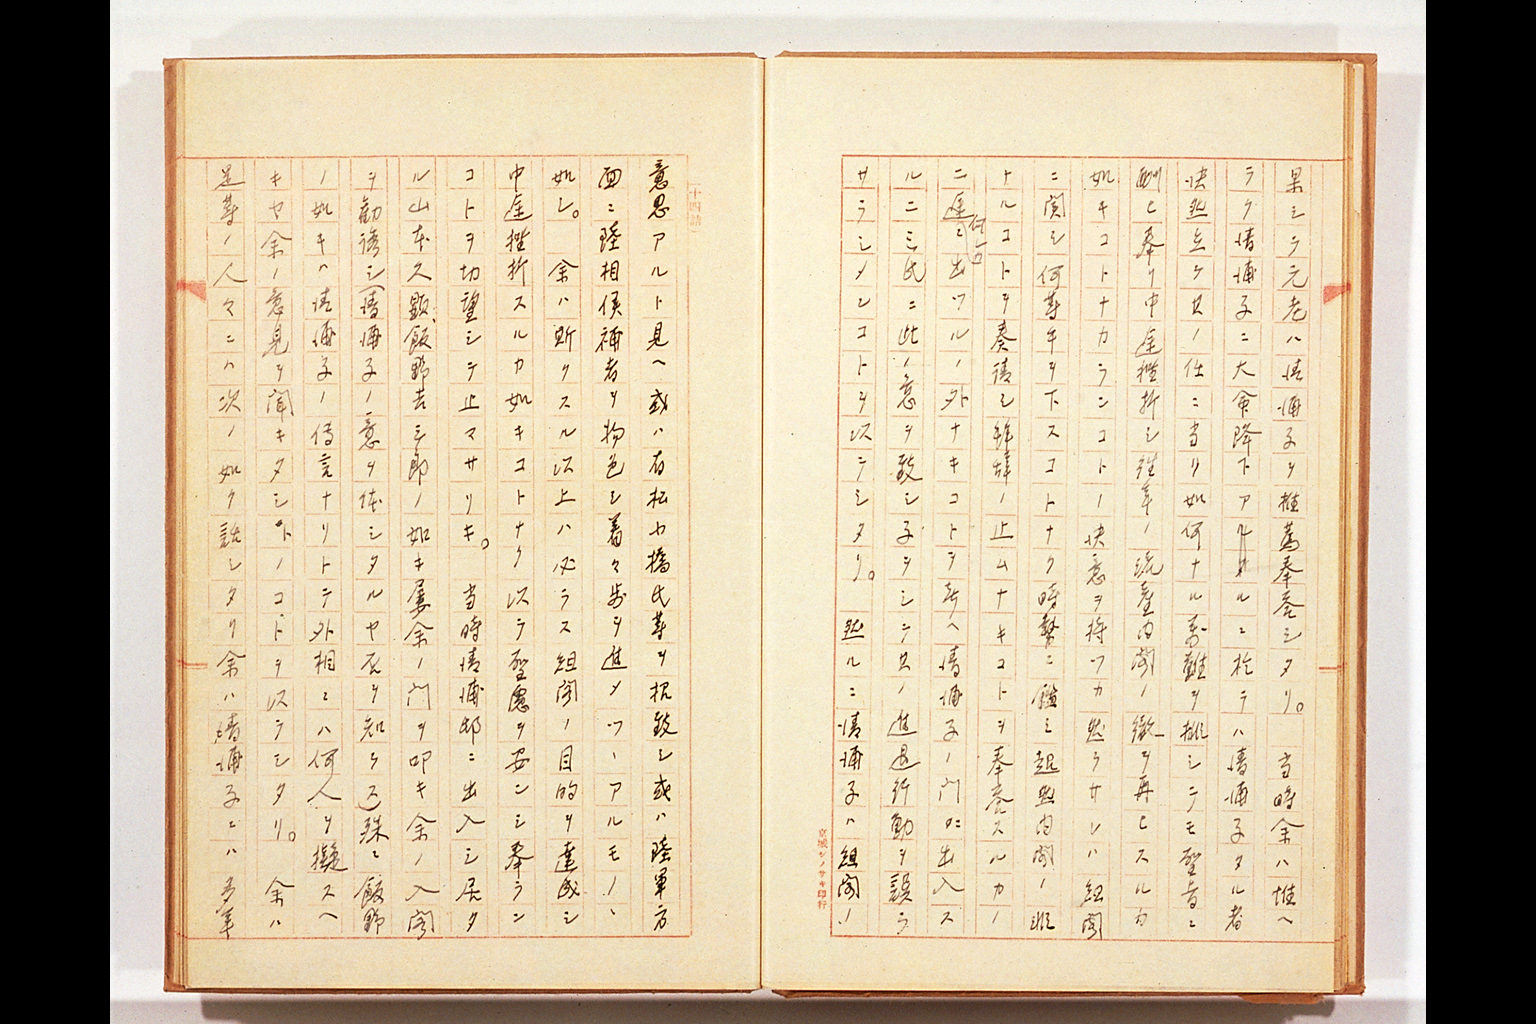 果シテ元老ハ清浦子ヲ推薦奉答シタリ。　当時余ハ惟ヘ
ラク清浦子ニ大命降下アルニ於テハ清浦子タル者
決然立ケ其ノ任ニ当リ如何ナル万難ヲ排シテモ聖旨ニ
酬ヒ奉リ中途挫折シ往年ノ流産内閣ノ徹ヲ再ヒスルカ
如キコトナカランコトノ決意ヲ持ツカ然ラサレハ組閣
ニ関シ何等手ヲ下スコトナク時勢ニ鑑ミ超然内閣ノ
ナルコトヲ奏請シ拝辞ノ止ムナキコトヲ奉答スルカノ
ニ途ニ出ツルノ外ナキコトヲ考ヘ清浦子ノ門ニ出入ス
何レカ
ル二三氏ニ此ノ意ヲ致シ子ヲシテ其ノ進退行動ヲ誤ラ
サラシメンコトヲ以テシタリ。　然ルニ清浦子ハ組閣ノ
京城シノサキ印行
十四詰
意思アルト見ヘ或ハ有松カ橋氏等ヲ招致シ或ハ陸軍方
面ニ陸相候補者ヲ物色シ着々歩ヲ進メツヽアルモノヽ
如シ。　余ハ斯クスル以上ハ必ラス組閣ノ目的ヲ達成シ
中途挫折スルカ如キコトナク以テ聖慮ヲ安ンシ奉ラン
コトヲ切望シテ止マサリキ。　当時清浦邸ニ出入シ居タ
ル山本久顕、飯野吉三郎ノ如キ屡余ノ門ヲ叩キ余ノ入閣
ヲ勧誘シ(清浦子ノ意ヲ体シタルヤ否ヲ知ラス)殊ニ飯野
ノ如キハ清浦子ノ伝言ナリトテ外相ニハ何人ヲ擬スヘ
キヤ余ノ意見ヲ聞キタシトノコトヲ以テシタリ。　余ハ
是等ノ人々ニハ次ノ如ク話シタリ余ハ清浦子トハ多年